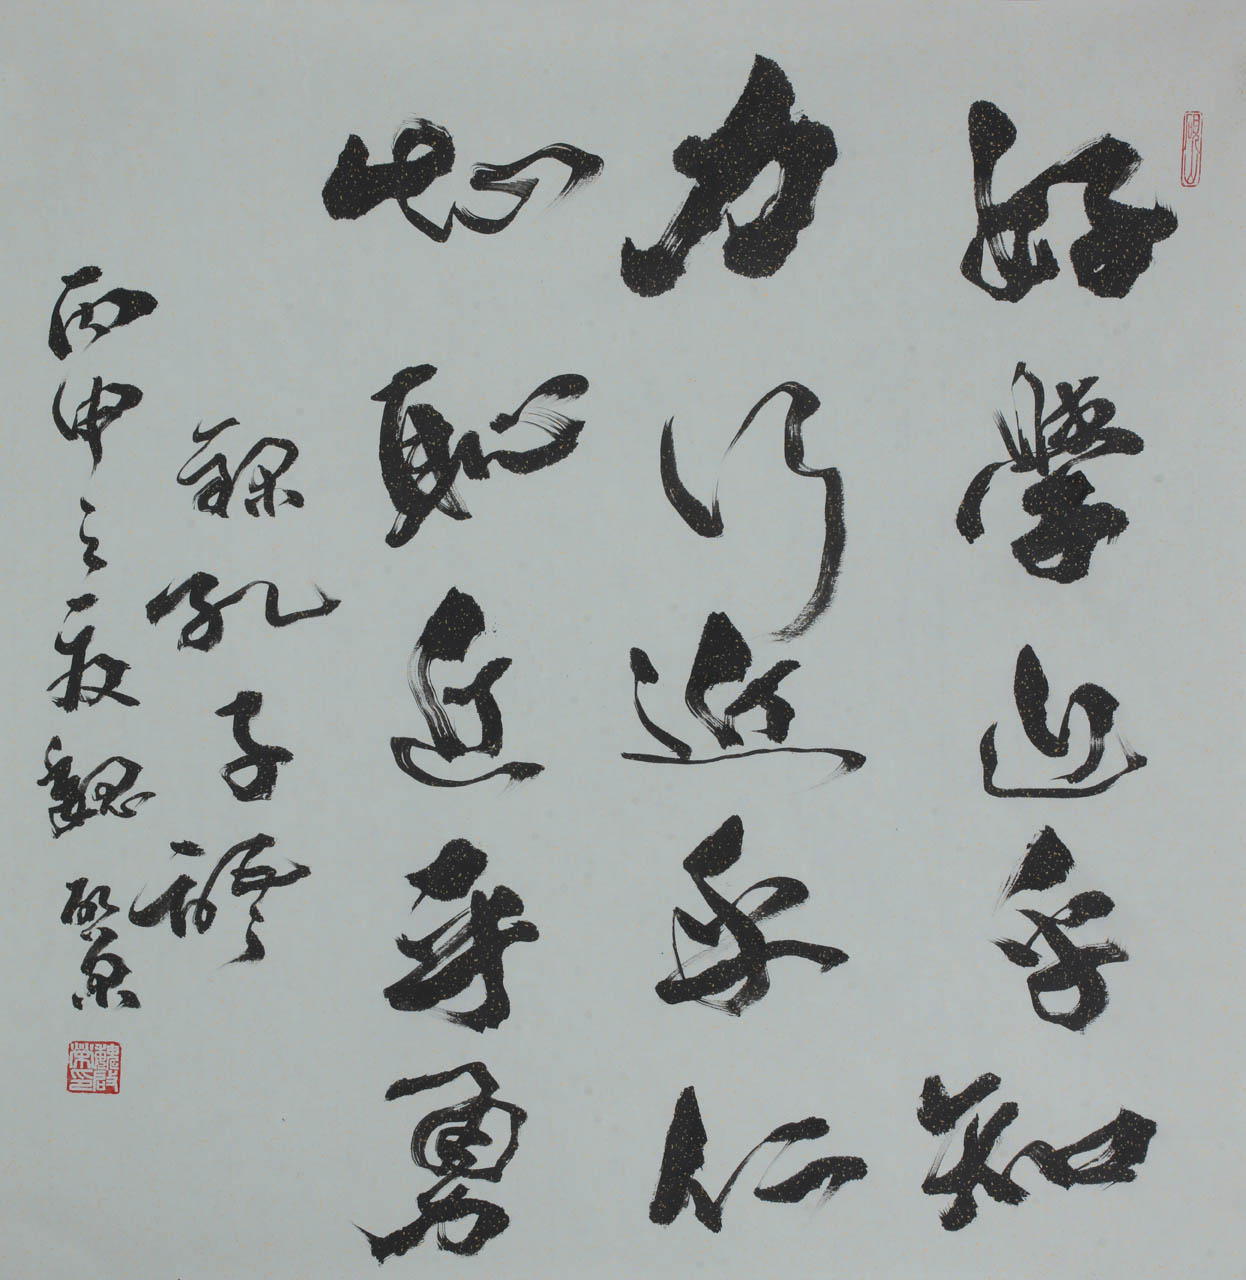 好學近乎知
力行近乎仁
知恥近乎勇
錄孔子語
丙申之夏魏啟榮
魏啟榮印